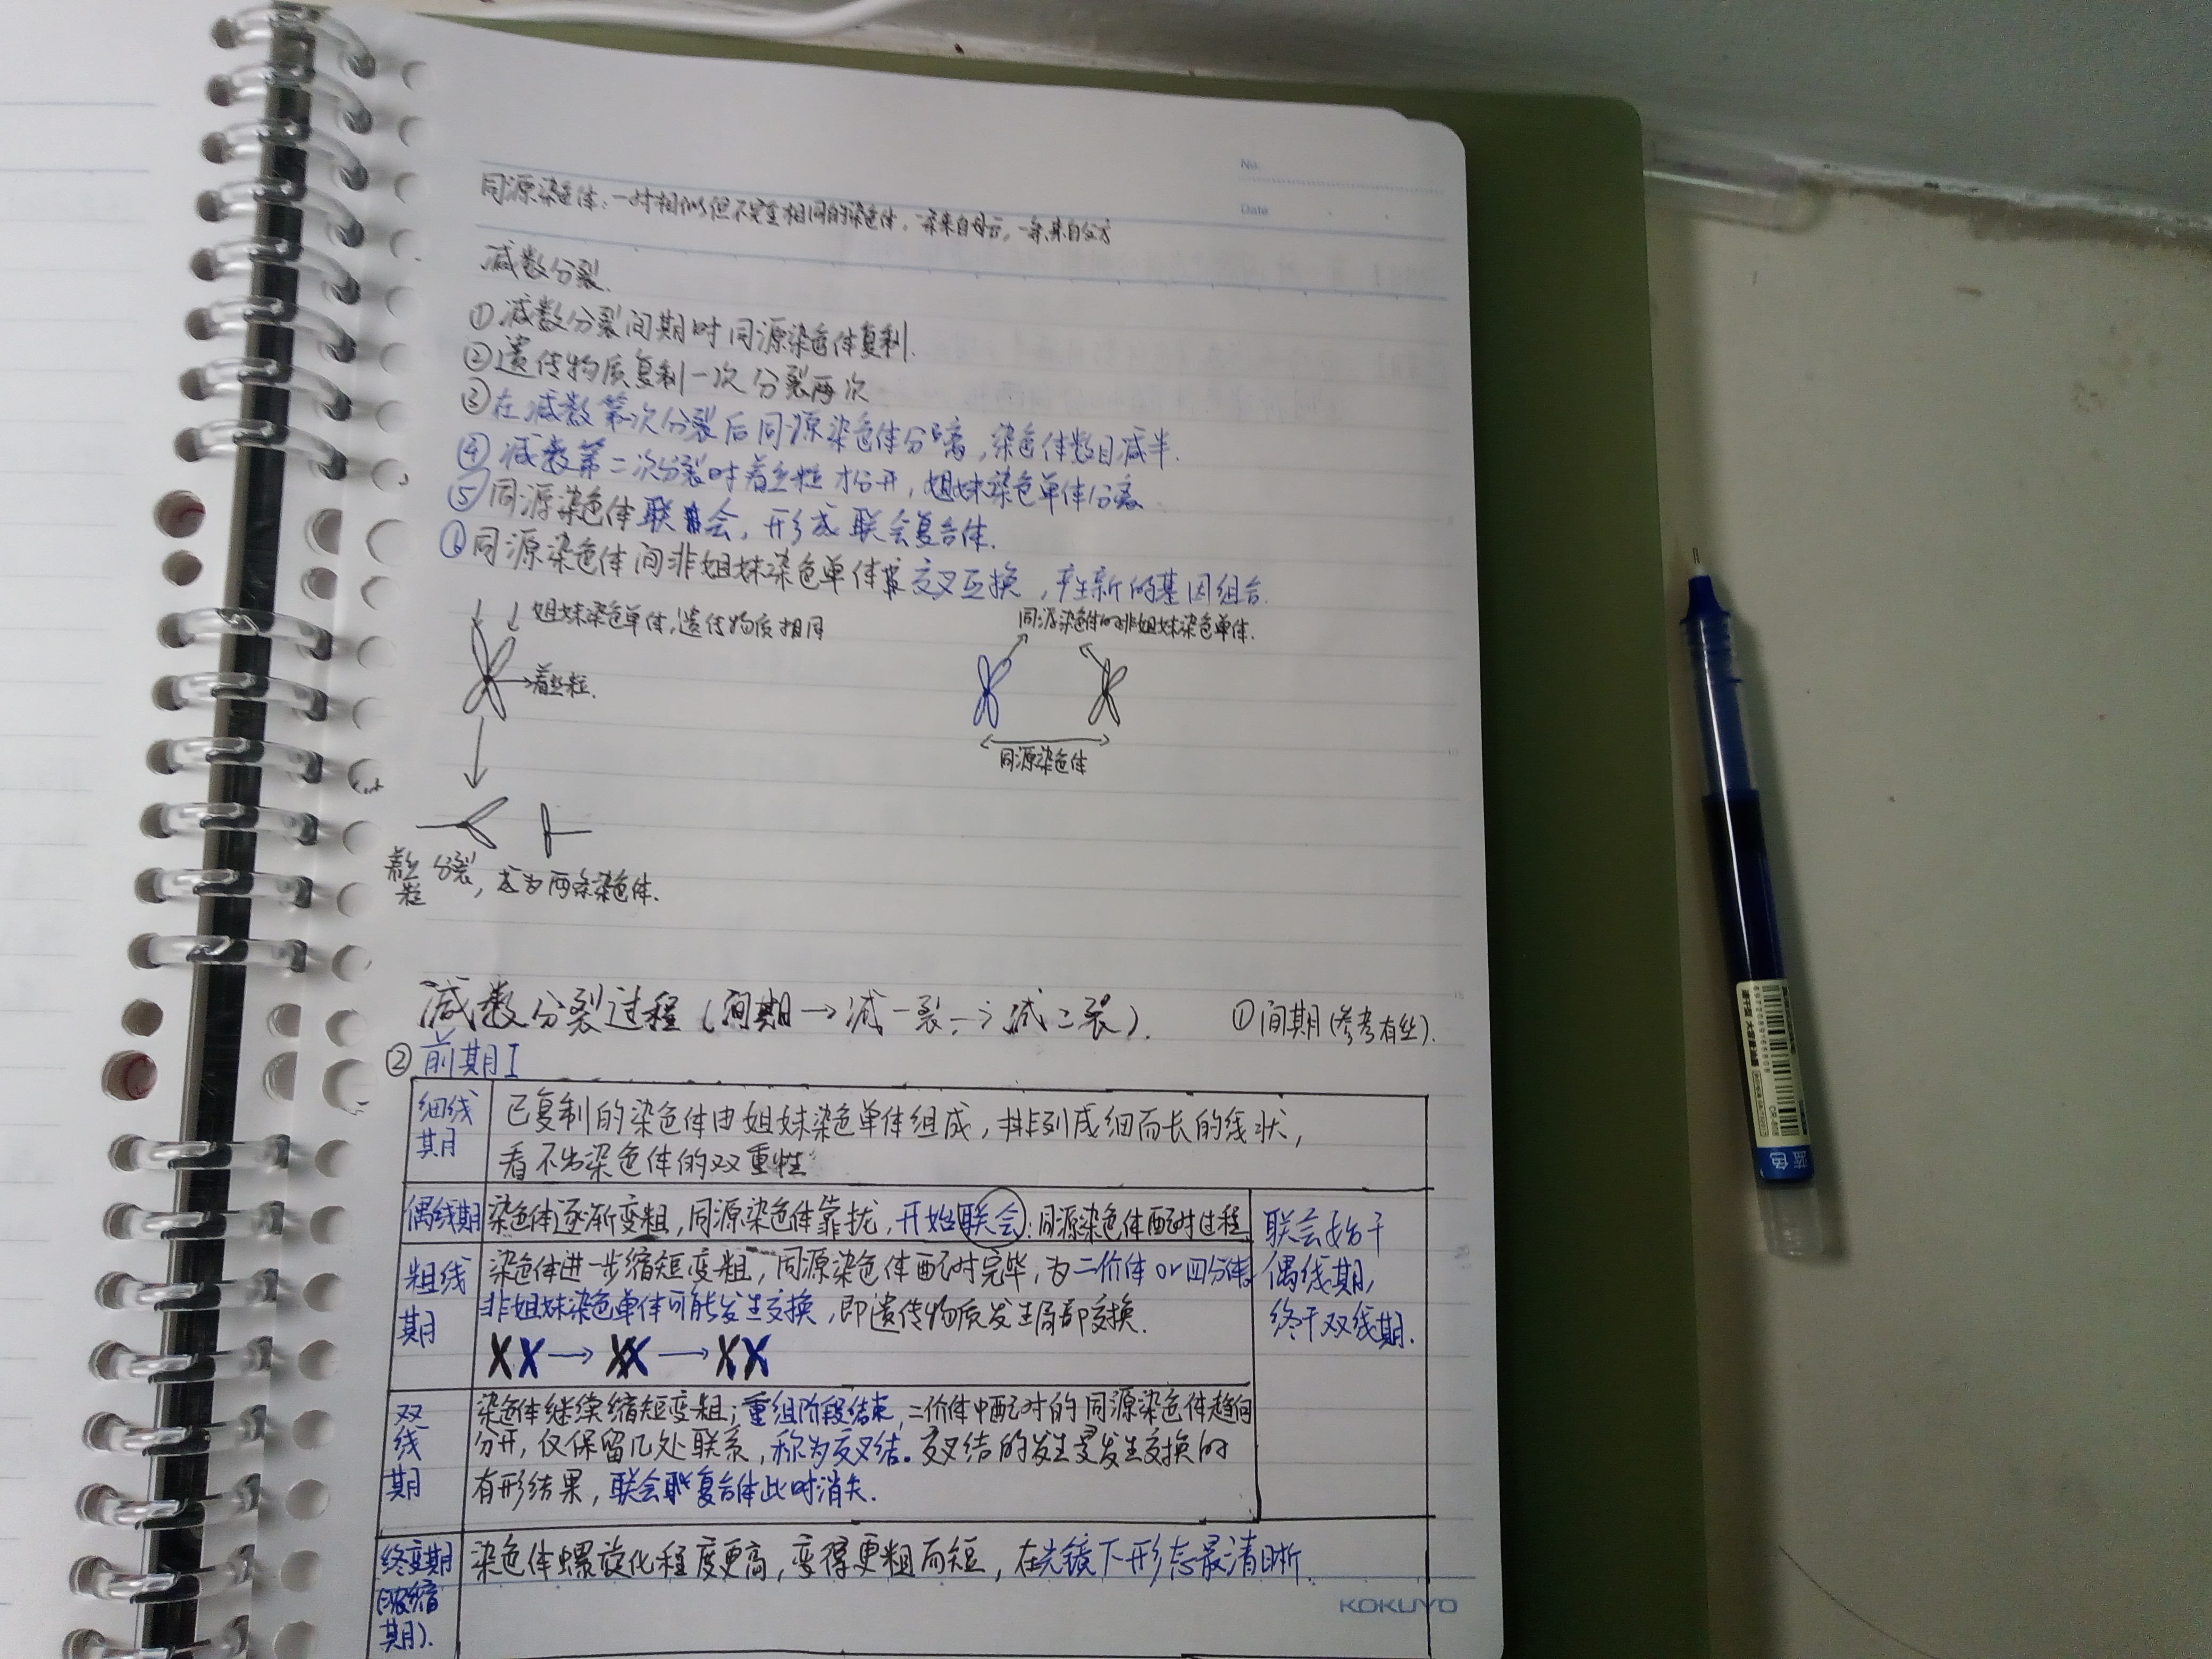 No.
Date
同源染色体：一对相似但不完全相同的染色体，一条来自母方，一条来自父方
减数分裂.
①减数分裂间期时同源染色体复制.
②遗传物质复制一次分裂两次
③在减数第一次分裂后同源染色体分离，染色体数目减半.
④减数第二次分裂时着丝粒才分开，姐妹染色单体分离
⑤同源染色体联会，形成联会复合体.
⑥同源染色体间非姐妹染色单体交叉互换，产生新的基因组合.
姐妹染色单体，遗传物质相同
同源染色体的非姐妹染色单体.
着丝粒.
同源染色体
着丝粒分裂，成为两条染色体.
减数分裂过程(间期→减一裂→减二裂). ①间期(参考有丝).
②前期I
细线期 已复制的染色体由姐妹染色单体组成，排列成细而长的线状，
看不出染色体的双重性
偶线期 染色体逐渐变粗，同源染色体靠拢，开始联会：同源染色体配对过程
粗线期 染色体进一步缩短变粗，同源染色体配对完毕，为二价体or四分体，
非姐妹染色单体可能发生交换，即遗传物质发生局部交换.
联会始于
偶线期，
终于双线期.
双线期 染色体继续缩短变粗；重组阶段结束，二价体中配对的同源染色体趋向
分开，仅保留几处联系，称为交叉结。交叉结的发生是发生交换的
有形结果，联会复合体此时消失.
终变期(浓缩期). 染色体螺旋化程度更高，变得更粗而短，在光镜下形态最清晰.
KOKUYO
蓝色